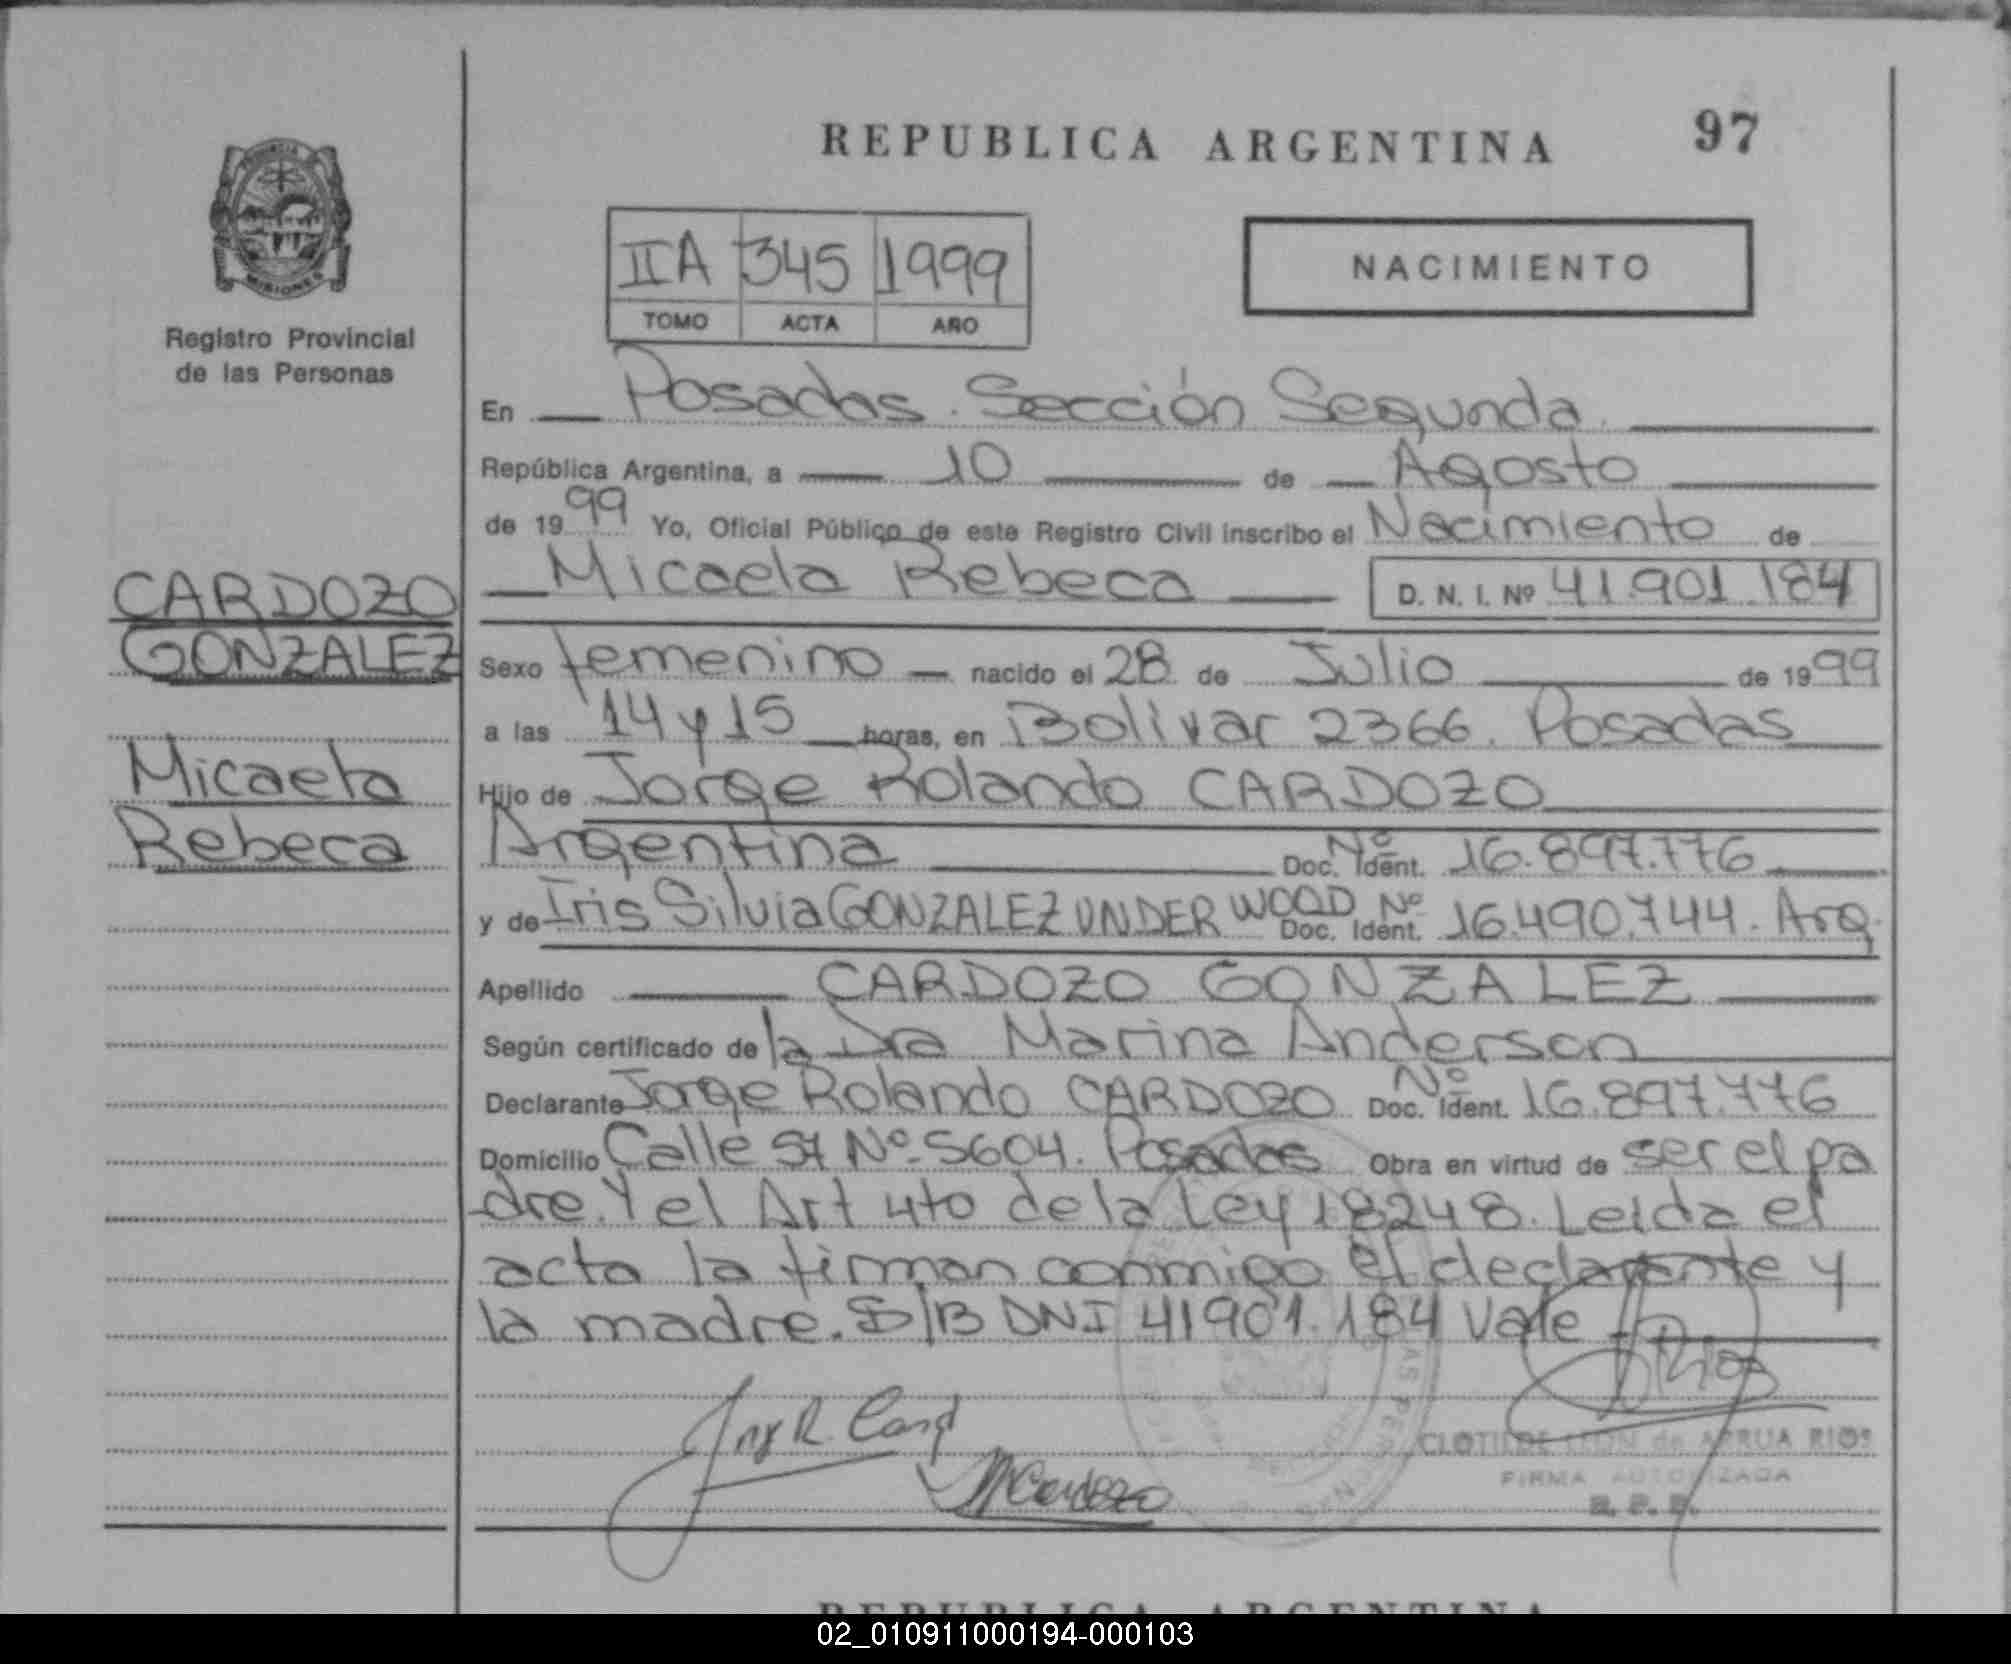 REPUBLICA ARGENTINA
97
PROVINCIA
MISIONES
Registro Provincial
de las Personas
IIA 345 1999
TOMO ACTA AÑO
NACIMIENTO
En Posadas. Sección Segunda.
República Argentina, a 10 de Agosto
de 1999 Yo, Oficial Público de este Registro Civil inscribo el Nacimiento de
Micaela Rebeca D. N. I. Nº 41.901.184
CARDOZO
GONZALEZ
Micaela
Rebeca
Sexo femenino nacido el 28 de Julio de 1999
a las 14 y 15 horas, en Bolivar 2366. Posadas
Hijo de Jorge Rolando CARDOZO
Argentina Doc. Ident. Nº 16.897.776
y de Iris Silvia GONZALEZ UNDERWOOD Doc. Ident. Nº 16.490.744. Arg.
Apellido CARDOZO GONZALEZ
Según certificado de la Dra Marina Anderson
Declarante Jorge Rolando CARDOZO Doc. Ident. Nº 16.897.776
Domicilio Calle Nº 5604. Posadas Obra en virtud de ser el pa
dre. Y el Art 4to de la Ley 18248. Leida el
acta la firman conmigo el declarante y
la madre. S/B DNI 41901.184 Vale
CLOTILDE LEON de RIOS
FIRMA AUTORIZADA
REPUBLICA ARGENTINA
02_010911000194-000103